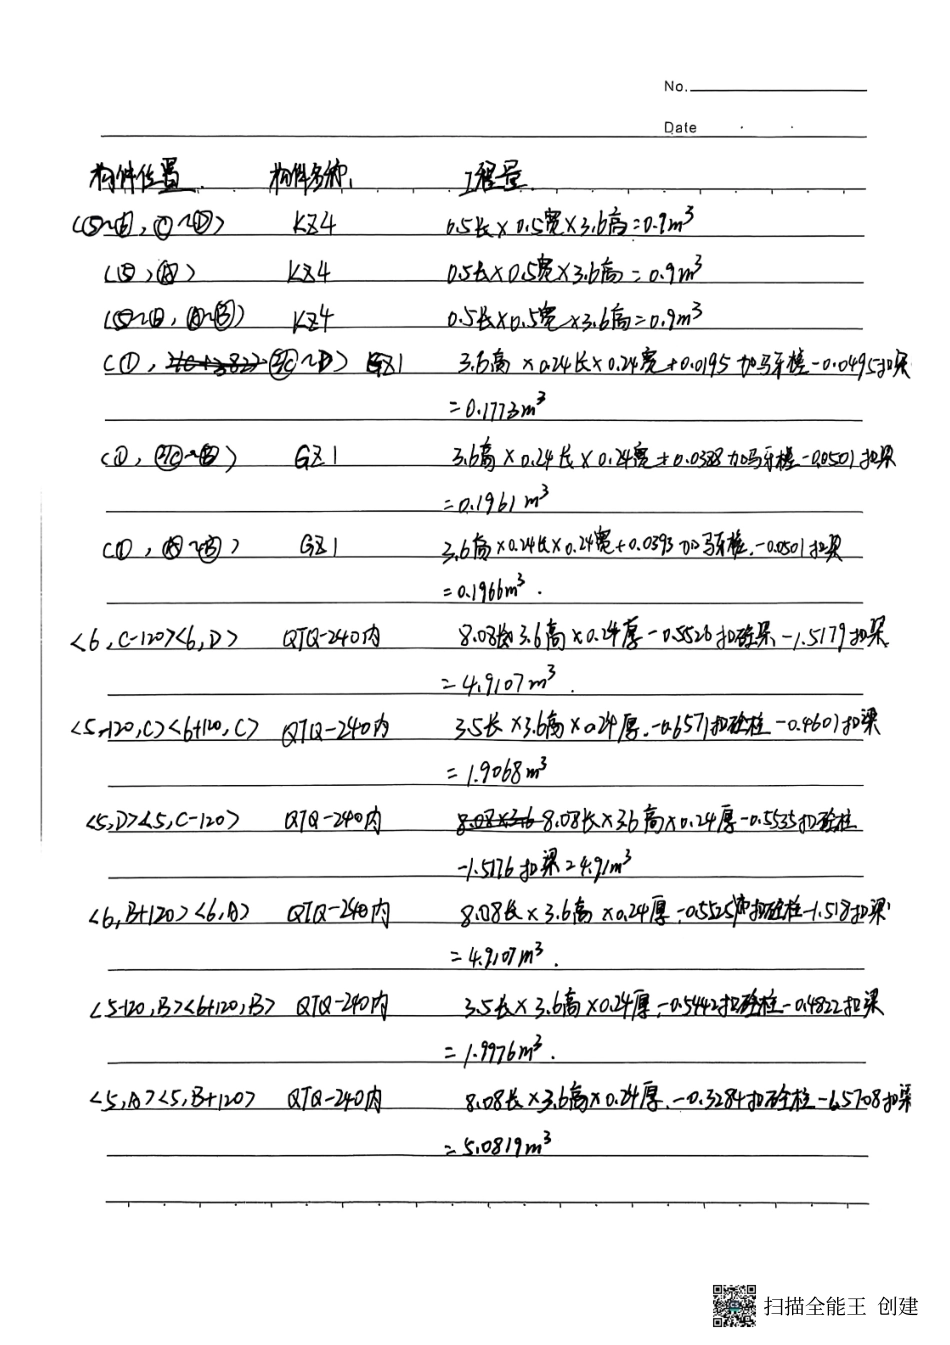 No.
Date
构件位置 构件名称 工程量
(⑤~⑥, Ⓒ~Ⓓ) KZ4 0.5长×0.5宽×3.6高=0.9m³
(⑤, Ⓐ) KZ4 0.5长×0.5宽×3.6高=0.9m³
(⑤~⑥, Ⓐ~Ⓑ) KZ4 0.5长×0.5宽×3.6高=0.9m³
(①, ~Ⓓ) GZ1 3.6高×0.24长×0.24宽+0.0195加马牙槎-0.0495扣梁
=0.1773m³
(①, ~Ⓑ) GZ1 3.6高×0.24长×0.24宽+0.0388加马牙槎-0.0501扣梁
=0.1961m³
(①, Ⓐ~Ⓑ) GZ1 3.6高×0.24长×0.24宽+0.0393加马牙槎-0.0501扣梁
=0.1966m³.
<6,C-120><6,D> QTQ-240内 8.08长3.6高×0.24厚-0.5526扣砼梁-1.5179扣梁
=4.9107m³.
<5-120,C><6+120,C> QTQ-240内 3.5长×3.6高×0.24厚-0.6571扣砼柱-0.4601扣梁
=1.9068m³
<5,D><5,C-120> QTQ-240内 8.08×3.6 8.08长×3.6高×0.24厚-0.5535扣砼柱
-1.5176扣梁=4.91m³
<6,B+120><6,A> QTQ-240内 8.08长×3.6高×0.24厚-0.5525扣砼柱-1.518扣梁
=4.9107m³.
<5-120,B><6+120,B> QTQ-240内 3.5长×3.6高×0.24厚-0.5442扣砼柱-0.4822扣梁
=1.9976m³.
<5,A><5,B+120> QTQ-240内 8.08长×3.6高×0.24厚-0.3284扣砼柱-1.5708扣梁
=5.0819m³
扫描全能王 创建